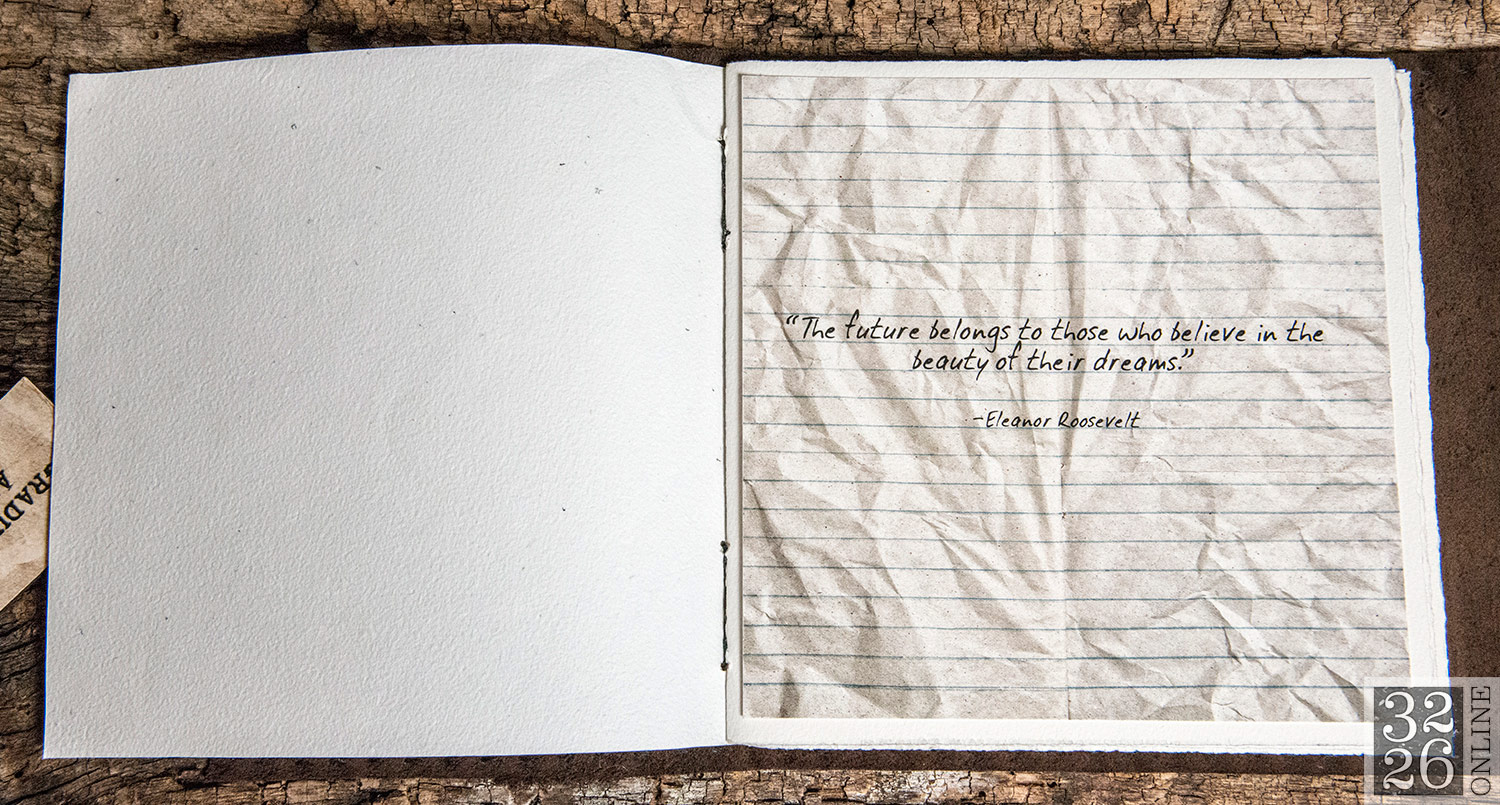 “The future belongs to those who believe in the
beauty of their dreams.”
-Eleanor Roosevelt
A
32
26
ONLINE